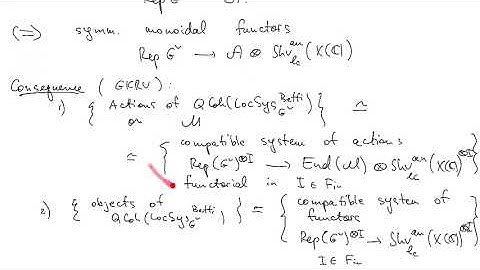 Rep G^∨
(⟺) symm. monoidal functors
Rep G^∨ ⟶ 𝒜 ⊗ Shv_{lc}^{an}(X(ℂ))
Consequence (GKRV):
1) { Actions of QCoh(LocSys_{G^∨}^{Betti}) on ℳ } ≃
≃ { compatible system of actions
Rep(G^∨)^{⊗I} ⟶ End(ℳ) ⊗ Shv_{lc}^{an}(X(ℂ)^{I})
functorial in I ∈ Fin }
2) { objects of QCoh(LocSys_{G^∨}^{Betti}) } ≃ { compatible system of functors
Rep(G^∨)^{⊗I} → Shv_{lc}^{an}(X(ℂ)^{I})
I ∈ Fin }